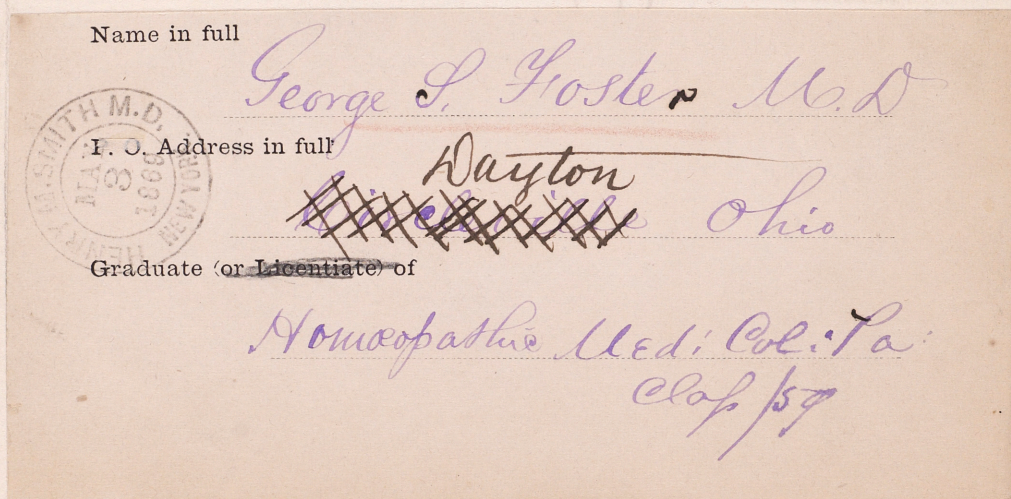 Name in full
George S. Foster M.D
HENRY M. SMITH M.D. NEW YORK.
MAY 3 1869
P. O. Address in full
Dayton
Ohio
Graduate (or Licentiate) of
Homœopathic Medi Col: Pa
Clafs /59